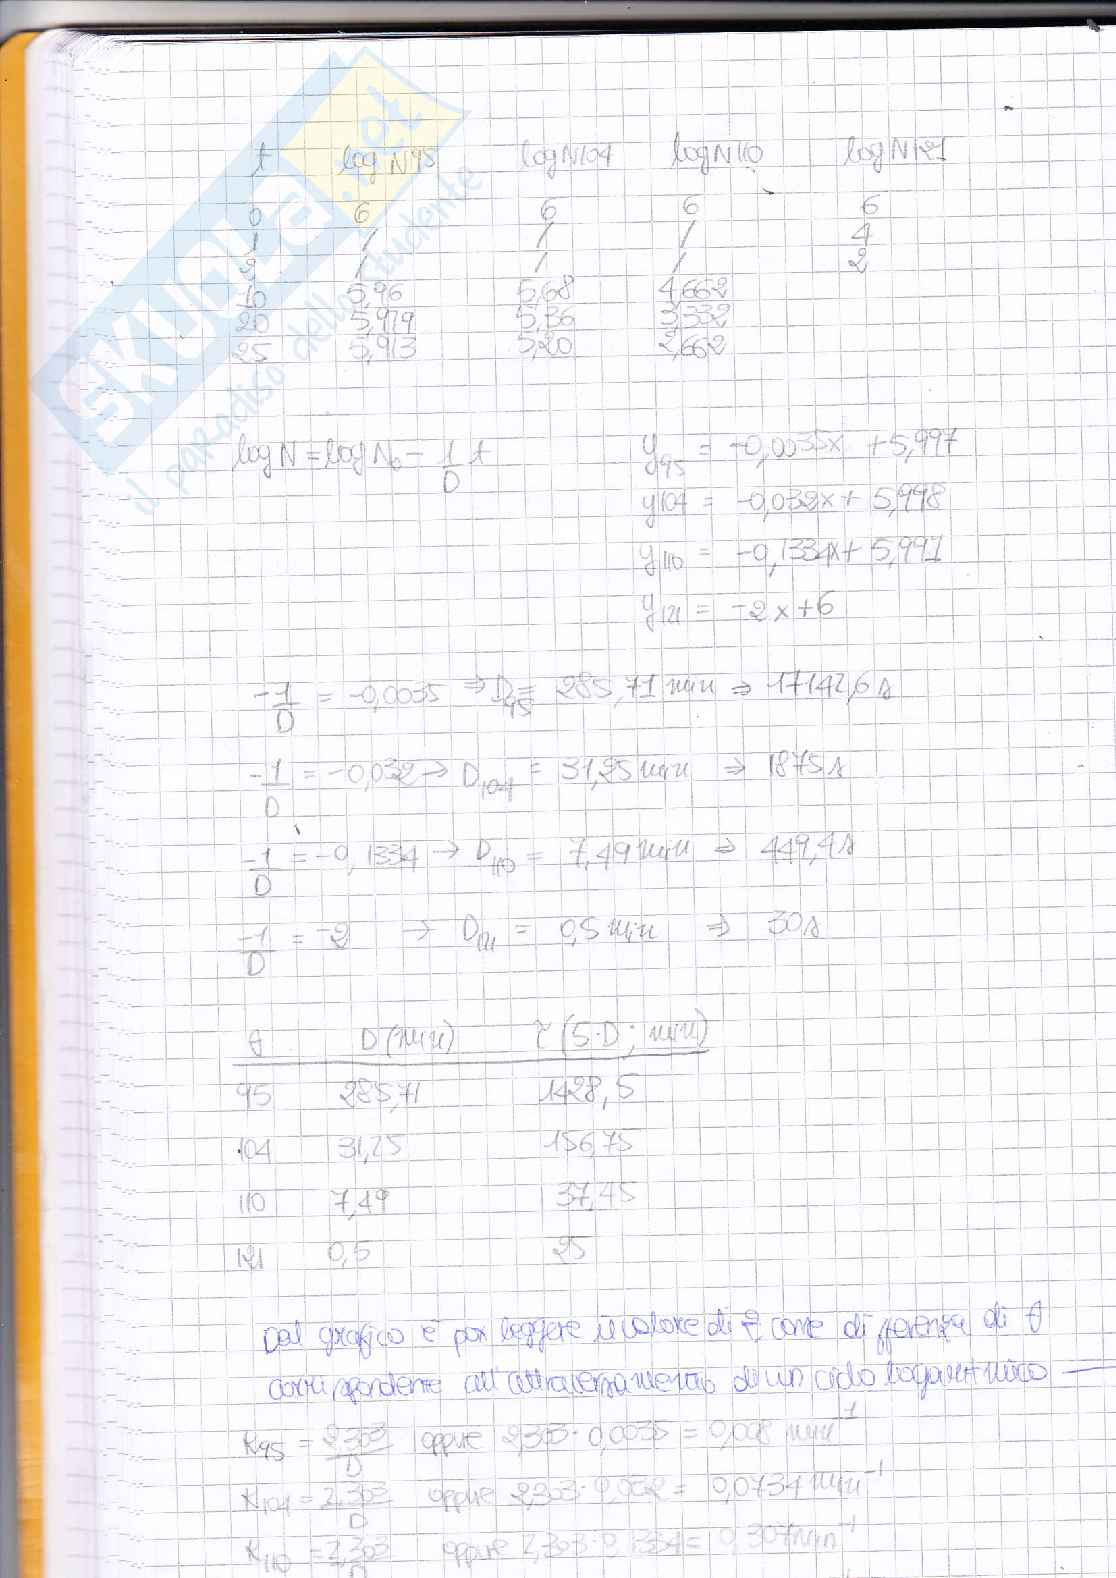 SKUOLA.net
il paradiso dello studente
t logN95 logN104 logN110 logN121
0 6 6 6 6
1 / / / 4
2 / / / 2
10 5,96 5,68 4,662
20 5,929 5,36 3,332
25 5,913 5,20 2,662
logN = logN0 - 1/D t
y95 = -0,0035x + 5,997
y104 = -0,032x + 5,998
y110 = -0,1334x + 5,997
y121 = -2x + 6
-1/D = -0,0035 ⇒ D95 = 285,71 min ⇒ 17142,6 s
-1/D = -0,032 → D104 = 31,25 min ⇒ 1875 s
-1/D = -0,1334 → D110 = 7,49 min ⇒ 449,4 s
-1/D = -2 → D121 = 0,5 min ⇒ 30 s
θ D (min) τ (5·D ; min)
95 285,71 1428,5
104 31,25 156,75
110 7,49 37,45
121 0,5 25
Dal grafico è poss leggere il valore di z come differenza di θ
corrispondente all'attraversamento di un ciclo logaritmico
K95 = 2,303/D oppure 2,303·0,0035 = 0,008 min-1
K104 = 2,303/D oppure 2,303·0,032 = 0,0734 min-1
K110 = 2,303/D oppure 2,303·0,1334 = 0,307 min-1